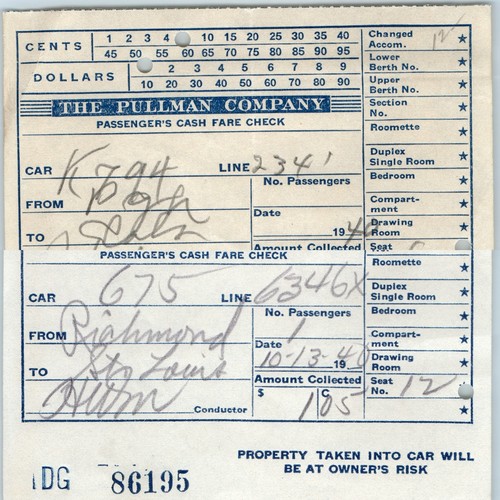 CENTS 1 2 3 4 10 15 20 25 30 35 40
45 50 55 60 65 70 75 80 85 90 95
DOLLARS 2 3 4 5 6 7 8 9
10 20 30 40 50 60 70 80 90
THE PULLMAN COMPANY
PASSENGER'S CASH FARE CHECK
CAR K794 LINE 2341
FROM
TO
No. Passengers
Date
19 40
Amount Collected
Changed Accom. ★
Lower Berth No. ★
Upper Berth No. ★
Section No. ★
Roomette ★
Duplex Single Room ★
Bedroom ★
Compart-
ment ★
Drawing Room ★
Seat
PASSENGER'S CASH FARE CHECK
CAR 675 LINE 6346X
FROM Richmond
TO St Louis
Conductor
No. Passengers 1
Date
10-13-1940
Amount Collected
$ 1 C 05
Roomette ★
Duplex Single Room ★
Bedroom ★
Compart-
ment ★
Drawing Room ★
Seat No. 12
★
PROPERTY TAKEN INTO CAR WILL
BE AT OWNER'S RISK
DG 86195